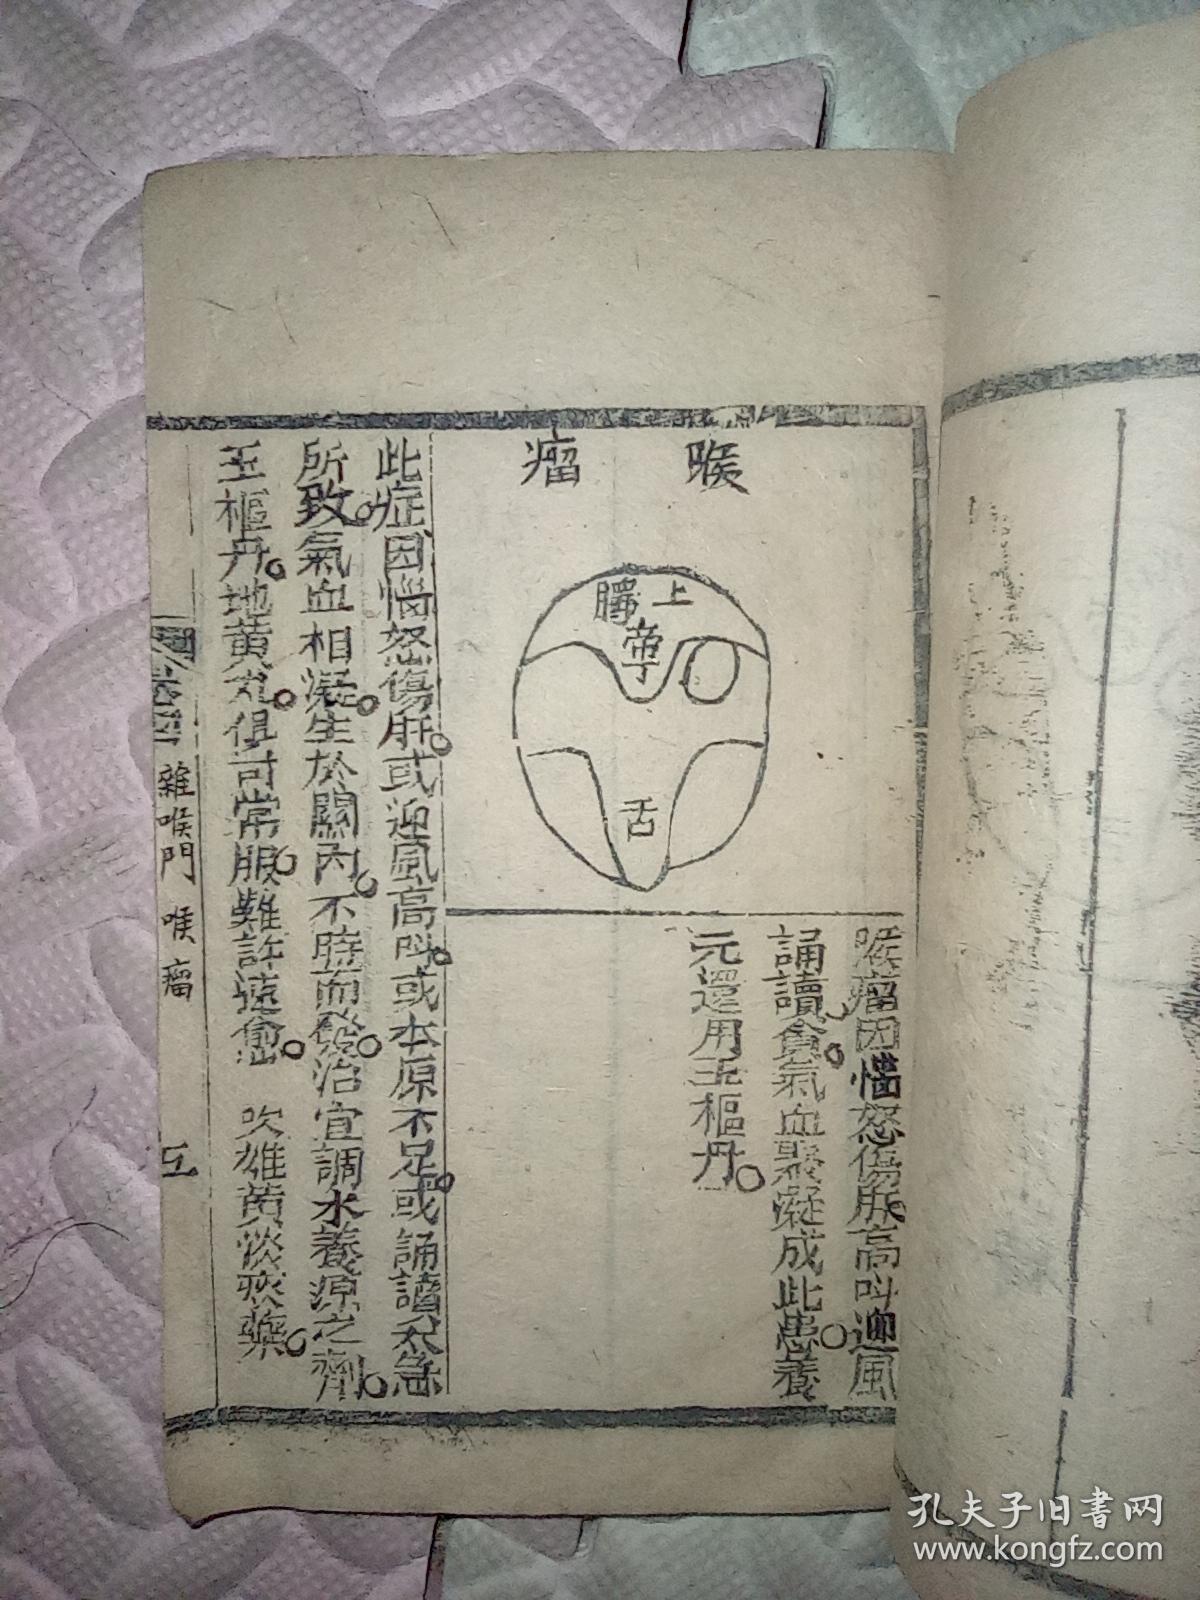 喉瘤
上腭
帝丁
舌
喉瘤因惱怒傷肝高叫迎風
誦讀食氣血聚凝成此患養
元還用玉樞丹
此症因惱怒傷肝或迎風高叫或本原不足或誦讀太急
所致氣血相凝生於關內不時而發治宜調水養源之劑
玉樞丹地黃丸俱可常服難許速愈 吹雄黃淡痰藥
卷四 雜喉門 喉瘤 五
孔夫子旧书网
www.kongfz.com